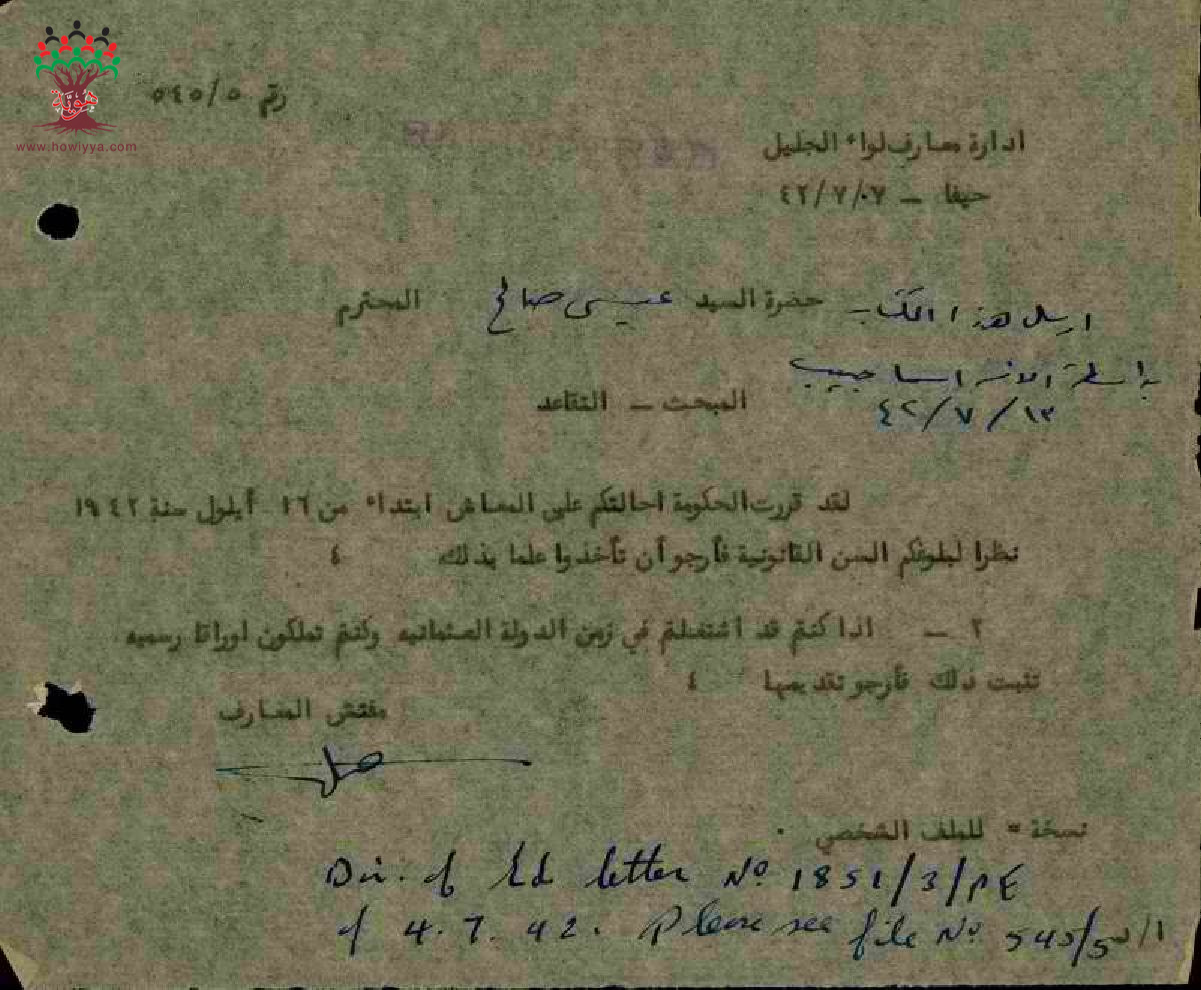 هوية
www.howiyya.com
رقم ٥٤٥/٥
ادارة معارف لواء الجليل
حيفا – ٤٢/٧/٠٧
ارسل هذا الكتاب
حضرة السيد عيسى صالح المحترم
بواسطة الانسة اسما حبيب
١٣/٧/٤٢
المبحث – التقاعد
لقد قررت الحكومة احالتكم على المعاش ابتداء من ١٦ أيلول سنة ١٩٤٢
نظرا لبلوغكم السن القانونية فأرجو أن تأخذوا علما بذلك ٤
٢ – اذا كنتم قد اشتغلتم في زمن الدولة العثمانيه وكنتم تملكون اوراقا رسميه
تثبت ذلك فأرجو تقديمها ٤
مفتش المعارف
نسخة = للملف الشخصي .
Dir. of Ed letter No 1851/3/PE
of 4.7.42. Please see file No